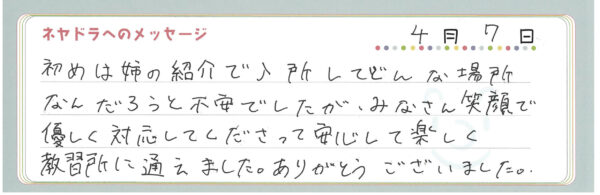 ネヤドラへのメッセージ 4月7日
初めは姉の紹介で入所してどんな場所
なんだろうと不安でしたが、みなさん笑顔で
優しく対応してくださって安心して楽しく
教習所に通えました。ありがとうございました。